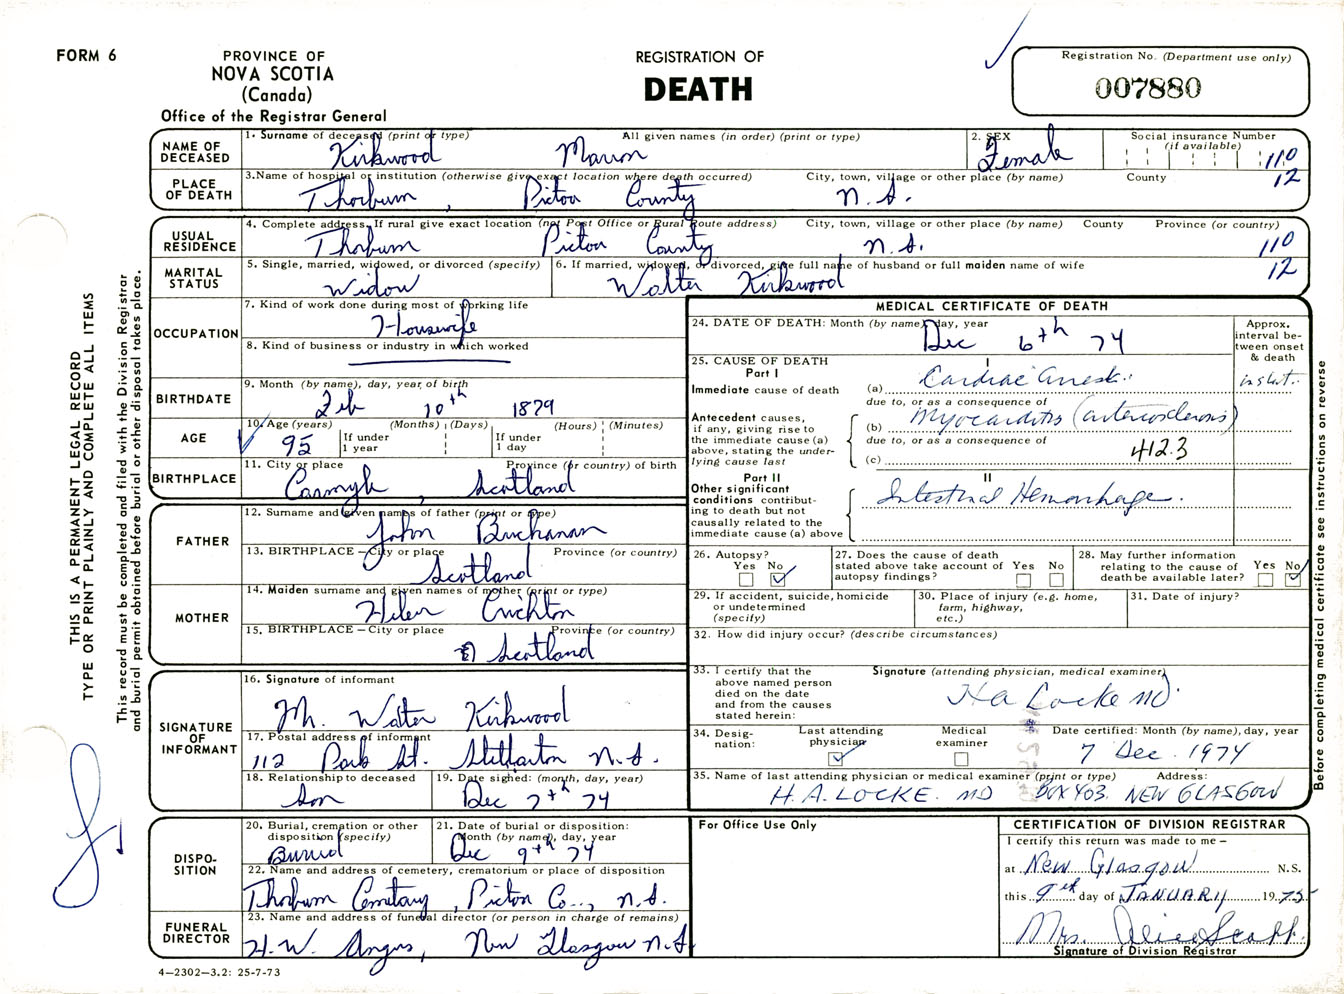 FORM 6
PROVINCE OF
NOVA SCOTIA
(Canada)
Office of the Registrar General
REGISTRATION OF
DEATH
Registration No. (Department use only)
007880
NAME OF DECEASED
1. Surname of deceased (print or type) All given names (in order) (print or type)
Kirkwood Marion
2. SEX
Female
Social insurance Number
(if available)
110
PLACE OF DEATH
3. Name of hospital or institution (otherwise give exact location where death occurred) City, town, village or other place (by name) County
12
Thorburn, Pictou County N.S.
USUAL RESIDENCE
4. Complete address. If rural give exact location (not Post Office or Rural Route address) City, town, village or other place (by name) County Province (or country)
Thorburn Pictou County N.S. 110
MARITAL STATUS
5. Single, married, widowed, or divorced (specify)
Widow
6. If married, widowed, or divorced, give full name of husband or full maiden name of wife
12
Walter Kirkwood
OCCUPATION
7. Kind of work done during most of working life
Housewife
8. Kind of business or industry in which worked
BIRTHDATE
9. Month (by name), day, year of birth
Feb 10th 1879
AGE
10. Age (years) (Months) (Days) (Hours) (Minutes)
95 If under 1 year If under 1 day
BIRTHPLACE
11. City or place Province (or country) of birth
Carmyle, Scotland
FATHER
12. Surname and given names of father (print or type)
John Buchanan
13. BIRTHPLACE – City or place Province (or country)
Scotland
MOTHER
14. Maiden surname and given names of mother (print or type)
Helen Crichton
15. BIRTHPLACE – City or place Province (or country)
Scotland
SIGNATURE OF INFORMANT
16. Signature of informant
Mr. Walter Kirkwood
17. Postal address of informant
112 Park St. Stellarton N.S.
18. Relationship to deceased
Son
19. Date signed: (month, day, year)
Dec 7th 74
DISPO-SITION
20. Burial, cremation or other disposition (specify)
Burial
21. Date of burial or disposition: Month (by name), day, year
Dec 9th 74
22. Name and address of cemetery, crematorium or place of disposition
Thorburn Cemetary, Pictou Co.., N.S.
FUNERAL DIRECTOR
23. Name and address of funeral director (or person in charge of remains)
H.W. Angus, New Glasgow N.S.
4–2302–3.2: 25-7-73
MEDICAL CERTIFICATE OF DEATH
24. DATE OF DEATH: Month (by name), day, year
Dec 6th 74
Approx. interval between onset & death
25. CAUSE OF DEATH
Part I
I
Immediate cause of death
(a) Cardiac arrest..
due to, or as a consequence of
Antecedent causes, if any, giving rise to the immediate cause (a) above, stating the underlying cause last
(b) Myocarditis (arteriosclerosis)
due to, or as a consequence of
(c) 412.3
Part II
II
Other significant conditions contributing to death but not causally related to the immediate cause (a) above
Intestinal Hemorrhage.
26. Autopsy?
Yes No
27. Does the cause of death stated above take account of autopsy findings?
Yes No
28. May further information relating to the cause of death be available later?
Yes No
29. If accident, suicide, homicide or undetermined (specify)
30. Place of injury (e.g. home, farm, highway, etc.)
31. Date of injury?
32. How did injury occur? (describe circumstances)
33. I certify that the above named person died on the date and from the causes stated herein:
Signature (attending physician, medical examiner)
H A Locke MD.
34. Designation:
Last attending physician
Medical examiner
Date certified: Month (by name), day, year
7 Dec. 1974
35. Name of last attending physician or medical examiner (print or type) Address:
H.A. LOCKE. MD BOX 403. NEW GLASGOW
For Office Use Only
CERTIFICATION OF DIVISION REGISTRAR
I certify this return was made to me –
at New Glasgow N.S.
this 9th day of JANUARY 1975
Mrs. Scott
Signature of Division Registrar
THIS IS A PERMANENT LEGAL RECORD
TYPE OR PRINT PLAINLY AND COMPLETE ALL ITEMS
This record must be completed and filed with the Division Registrar
and burial permit obtained before burial or other disposal takes place.
Before completing medical certificate see instructions on reverse